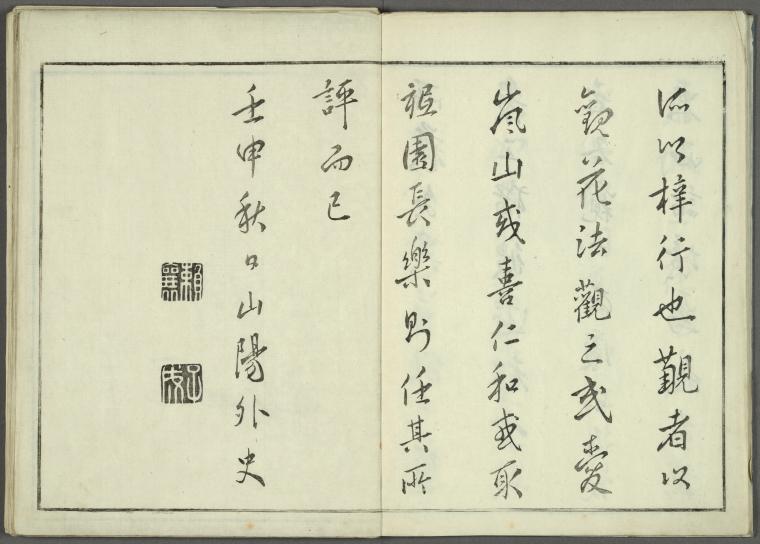 所以梓行也觀者以
観花法觀之或愛
嵐山或喜仁和或取
祇園長樂則任其所
評而已
壬申秋日山陽外史
賴襄
子成